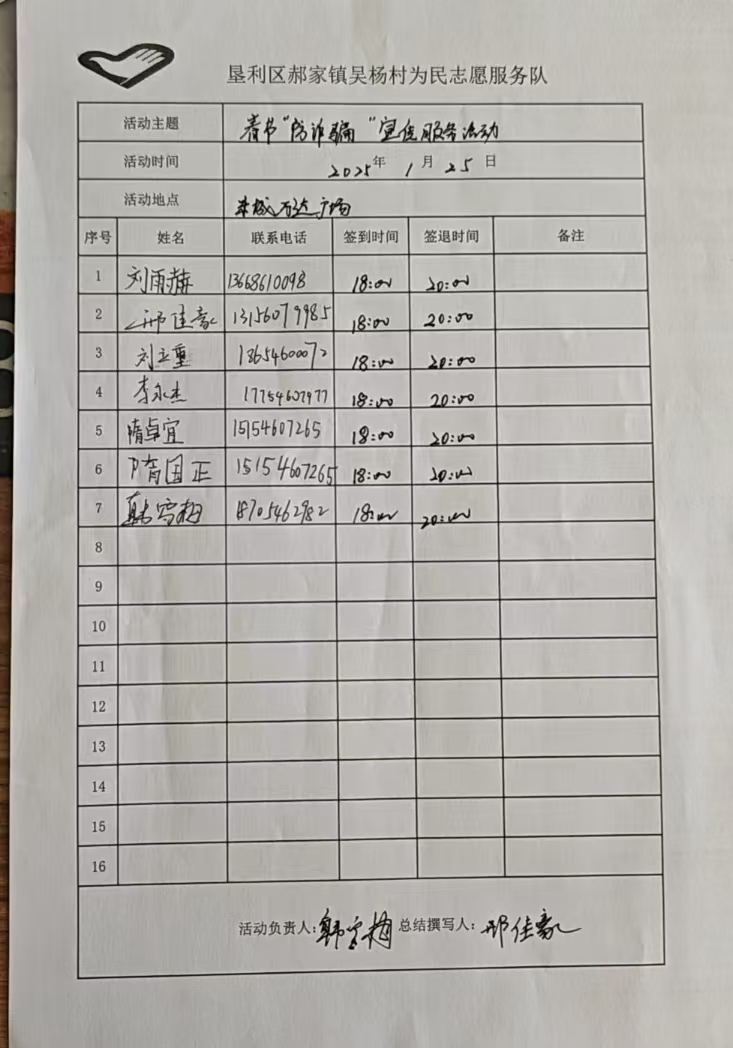 垦利区郝家镇吴杨村为民志愿服务队
活动主题 春节“防诈骗”宣传服务活动
活动时间 2025年 1月 25日
活动地点 东城万达广场
序号 姓名 联系电话 签到时间 签退时间 备注
1 刘雨赫 13668610098 18:00 20:00
2 邢佳豪 13156079985 18:00 20:00
3 刘立重 18654600072 18:00 20:00
4 李永杰 17754607977 18:00 20:00
5 隋卓宜 15154607265 18:00 20:00
6 隋国正 15154607265 18:00 20:00
7 韩雪梅 18705462982 18:00 20:00
8
9
10
11
12
13
14
15
16
活动负责人:韩雪梅 总结撰写人:邢佳豪